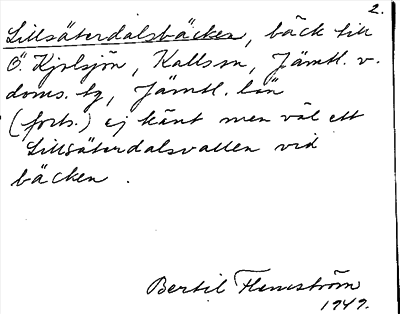 2.
Lillsäterdalsbäcken, bäck till
Ö. Kjolsjön, Kalls sn, Jämtl. v.
doms. lg, Jämtl. län
(forts.) ej känt men väl ett
Lillsäterdalsvallen vid
bäcken.
Bertil Flemström
1949.